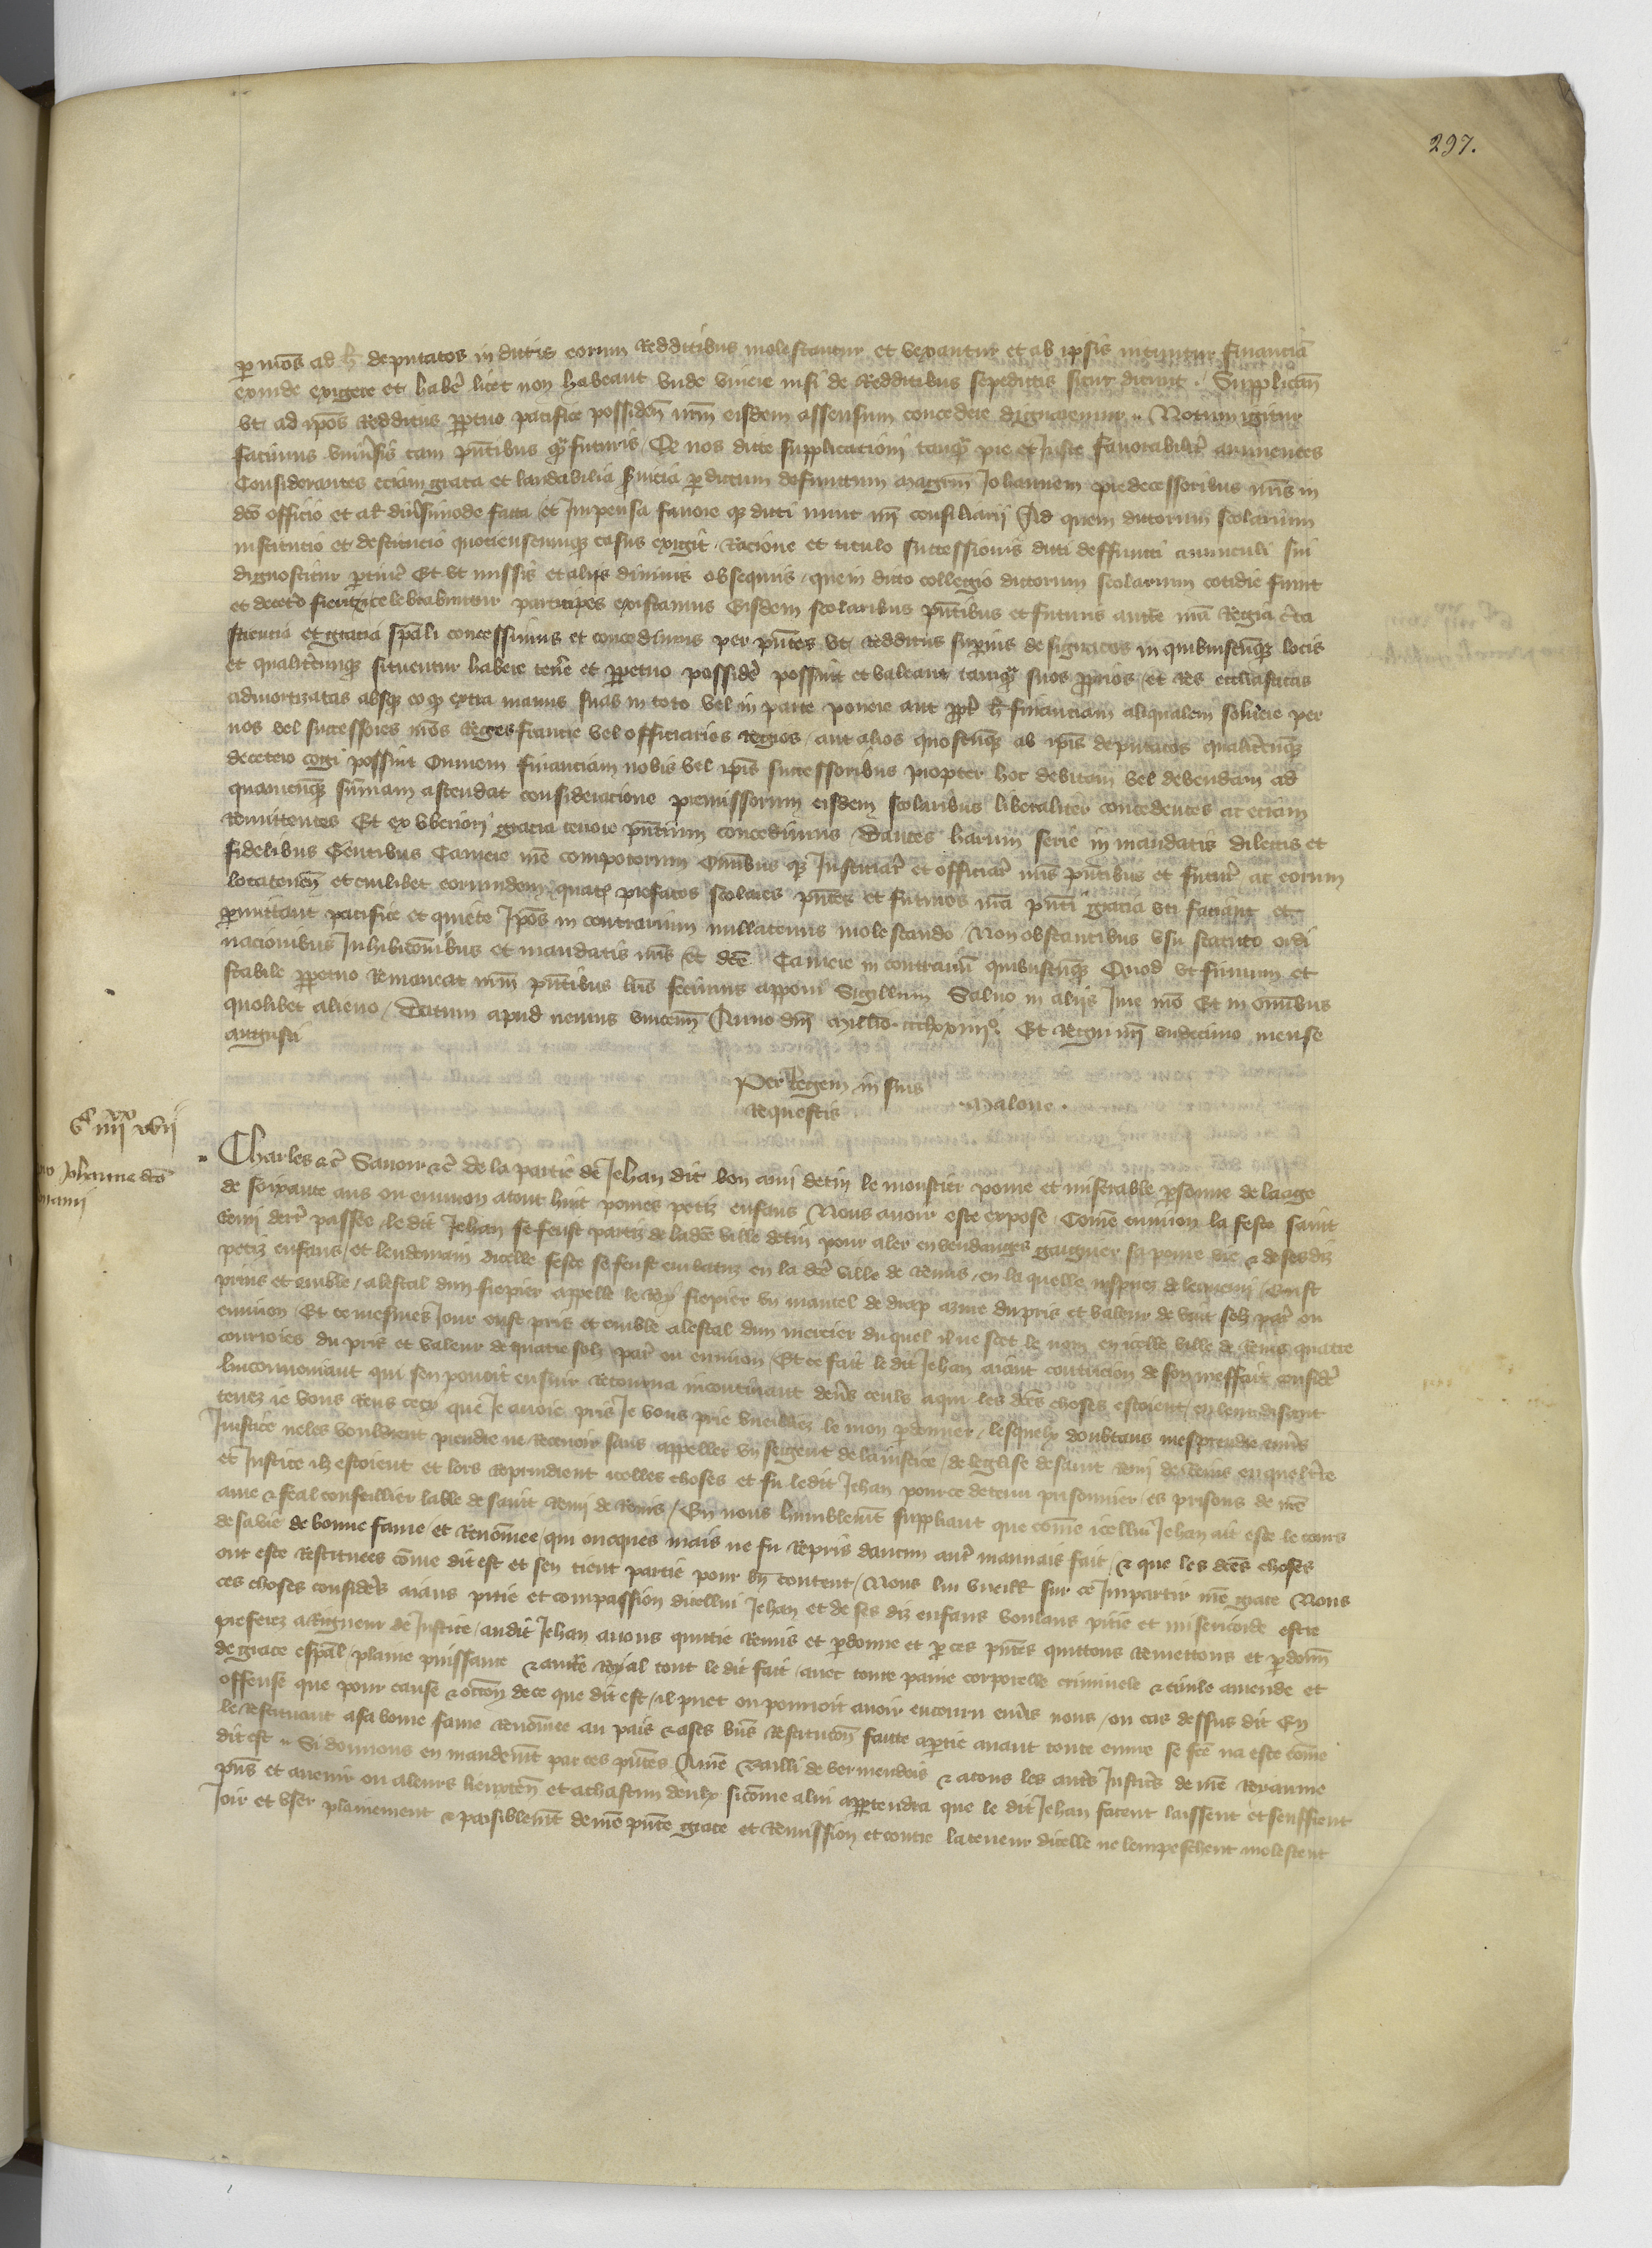 297.
p nros ad h deputatos in dictis eorum Redditibus molestantur et vexantur et ab ipsis nituntur financiam
exinde exigere et habere licet non habeant unde vivere nisi de Redditibus sepedictis sicut dicunt. Supplicant
ut ad ipos Redditus ppetuo pacifice possidend nrm eisdem assensum concedere dignaremur. Notum igitur
facimus universis tam pntibus q futuris Qd nos dicte supplicacioni tanq pie et Juste favorabiliter annuentes
Considerantes eciam grata et laudabilia servicia p dictum defunctum magrm Johannem predecessoribus nris in
dco officio et al diversimode facta et Impensa favore q dicti nunc nri consiliarii Ad quem dictorum scolarium
institucio et destitucio quotienscumq casus exigit Racione et titulo successionis dicti deffuncti avunculi sui
dignoscitur ptinere Et ut missis et aliis divinis obsequiis que in dicto collegio dictorum scolarium cotidie fiunt
et decetero fient celebrabuntur participes existamus Eisdem scolaribus pntibus et futuris aucte nra Regia certa
sciencia et gracia spali concessimus et concedimus per pntes ut Redditus superius designatos in quibuscumq locis
et qualitercumq situentur habere tenere et ppetuo possidere possint et valeant tanq suos pprios et Res ecclesiasticas
admortizatas absq eo q extra manus suas in toto vel in parte ponere aut ppter h financiam aliqualem solvere per
nos vel successores nros Reges francie vel officiarios regios aut alios quoscumq ab ipis deputatos qualitercumq
decetero cogi possint Omnem financiam nobis vel ipis successoribus propter hoc debitam vel debendam ad
quamcumq summam ascendat consideracione premissorum eisdem scolaribus liberaliter concedentes ac eciam
Remittentes Et ex uberiori gracia tenore pntium concedimus Dantes harum serie in mandatis dilectis et
fidelibus Gentibus Camere nre compotorum Omibus q Justiciar et officiar nris pntibus et futur ac eorum
locatenen et cuilibet eorumdem quat prefatos scolares pntes et futuros nra pnti gracia uti faciant et
pmittant pacifice et quiete Ipos in contrarium nullatenus molestando Non obstantibus usu statuto ordi
nacionibus Inhibicionibus et mandatis nris et dce Camere in contrarium quibuscumq Quod ut firmum et
stabile ppetuo Remaneat nrm pntibus lris fecimus apponi Sigillum Salvo in aliis Jure nro Et in omibus
quolibet alieno Datum apud nemus vincenn Anno dni millo ccclxxiiii Et Regni nri undecimo mense
augusti
Per Regem in suis
Requestis Maloue.
iiii xvii
Johanne dco
Charles &c Savoir &c de la partie de Jehan dit bon ami detin le moustier povre et miserable psonne de laage
de soixante ans ou environ atout huit povres petiz enfans Nous avoir este expose Come environ la feste saint
Remi derr passee ledit Jehan se feust partiz de ladce ville detin pour aler en vendanges gaigner sa povre vie & de ses diz
petiz enfans et lendemain dicelle feste se feust embatuz en la dce ville de Reins en la quelle inspirez de lennemi Eust
prins et emble a lestal dun frepier appelle le Roy frepier un mantel de drap a du pris et valeur de vint solz par ou
environ Et ce mesmes Jour eust pris et emble a lestal dun mercier duquel il ne scet le nom en icelle ville de Reins quatre
courroies du pris et valeur de quatre solz par ou environ Et ce fait le dit Jehan aiant contricion de son meffait consider
linconvenient qui sen povoit ensuir Retourna incontinant devers ceulx a qui les dces choses estoient en leur disant
tenez ie vous Rens cecy que Je avoie pris Je vous prie vueilliez le moy pdonner lesquelx doubtans mesprendre envers
Justice ne les voulurent prendre ne Recevoir sans appeller un sergent de la justice de leglise de saint Remi de Reins en quel tre
et Justice ilz estoient et lors Reprindrent icelles choses et fu ledit Jehan pour ce detenu prisonnier es prisons de nre
ame & feal conseillier labbe de saint Remi de Reins En nous humblement suppliant que come icellui Jehan ait este le cours
de sa vie de bonne fame et Renomee qui oncques mais ne fu Repris daucun autr mauvais fait & que les dces choses
ont este Restituees come dit est et sen tient partie pour bn content Nous lui vueill sur ce Impartir nre grace Nous
ces choses considers aians pitie et compassion dicellui Jehan et de ses diz enfans voulans pitie et misericorde estre
preferez a Rigueur de Justice audit Jehan avons quittie Remis et pdonne et p ces pntes quittons Remettons et pdonn
de grace espal plaine puissance & aucte Royal tout le dit fait avec toute paine corporelle criminele & civile amende et
offense que pour cause & occon de ce que dit est il puet ou pourroit avoir encouru envers nous ou cas dessus dit En
le Restituant a sa bonne fame Renomee au pais & a ses biens Restitucon faitte a ptie avant toute euvre se fce na este come
dit est Si donnons en mandement par ces pntes Au & Bailli de vermendois & a tous les autres Justices de nre Royaume
pns et avenir ou a leurs lieuxten et a chascun deulx sicome a lui appartendra que le dit Jehan facent laissent et seuffrent
Joir et user plainement & paisiblement de nre pnte grace et Remission et contre la teneur dicelle ne lempeschent molestent